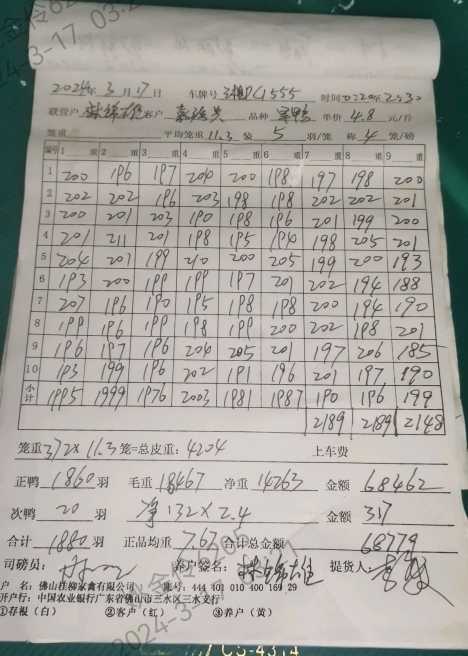 2024年 3 月 17 日 车牌号 1555 时间
联营户 客户 品种 单价 4.8 元/斤
笼重 平均笼重 11.3 装 5 羽/笼 称 4 笼/磅
编号 1 重 2 重 3 重 4 重 5 重 6 重 7 重 8 重 9 重
1 200 196 197 200 200 198 197 198 200
2 202 202 196 203 198 198 202 202 201
3 200 201 203 190 198 196 201 199 200
4 201 211 201 198 195 190 198 205 201
5 204 201 199 210 200 205 199 200 193
6 193 200 199 199 197 201 202 194 188
7 207 196 190 195 198 198 200 194 190
8 199 196 199 198 199 200 202 198 201
9 196 197 196 204 205 201 197 206 185
10 193 199 196 202 191 196 201 197 190
小计 1995 1999 1976 2003 1981 1987 190 196 199
2189 2189 2148
笼重 372×11.3 笼=总皮重: 4204 上车费
正鸭 1860 羽 毛重 18467 净重 14263 金额 68462
次鸭 20 羽 净132×2.4 金额 317
合计 1880 羽 正品均重 7.67 合计总金额 68779
司磅员: 养户签名: 提货人:
户 名: 佛山桂柳家禽有限公司 账号: 444 401 010 400 169 29
开户行: 中国农业银行广东省佛山市三水区三水支行
①存根（白） ②客户（红） ③养户（黄）